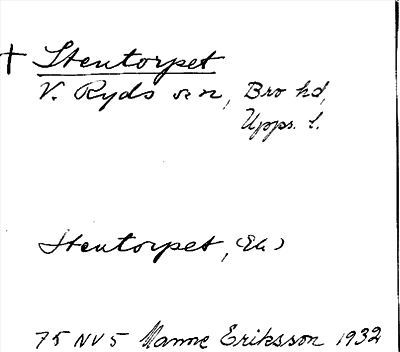 + Stentorpet
V. Ryds sn, Bro hd,
Upps. l.
Stentorpet, (Ek)
75 NV 5 Manne Eriksson 1932